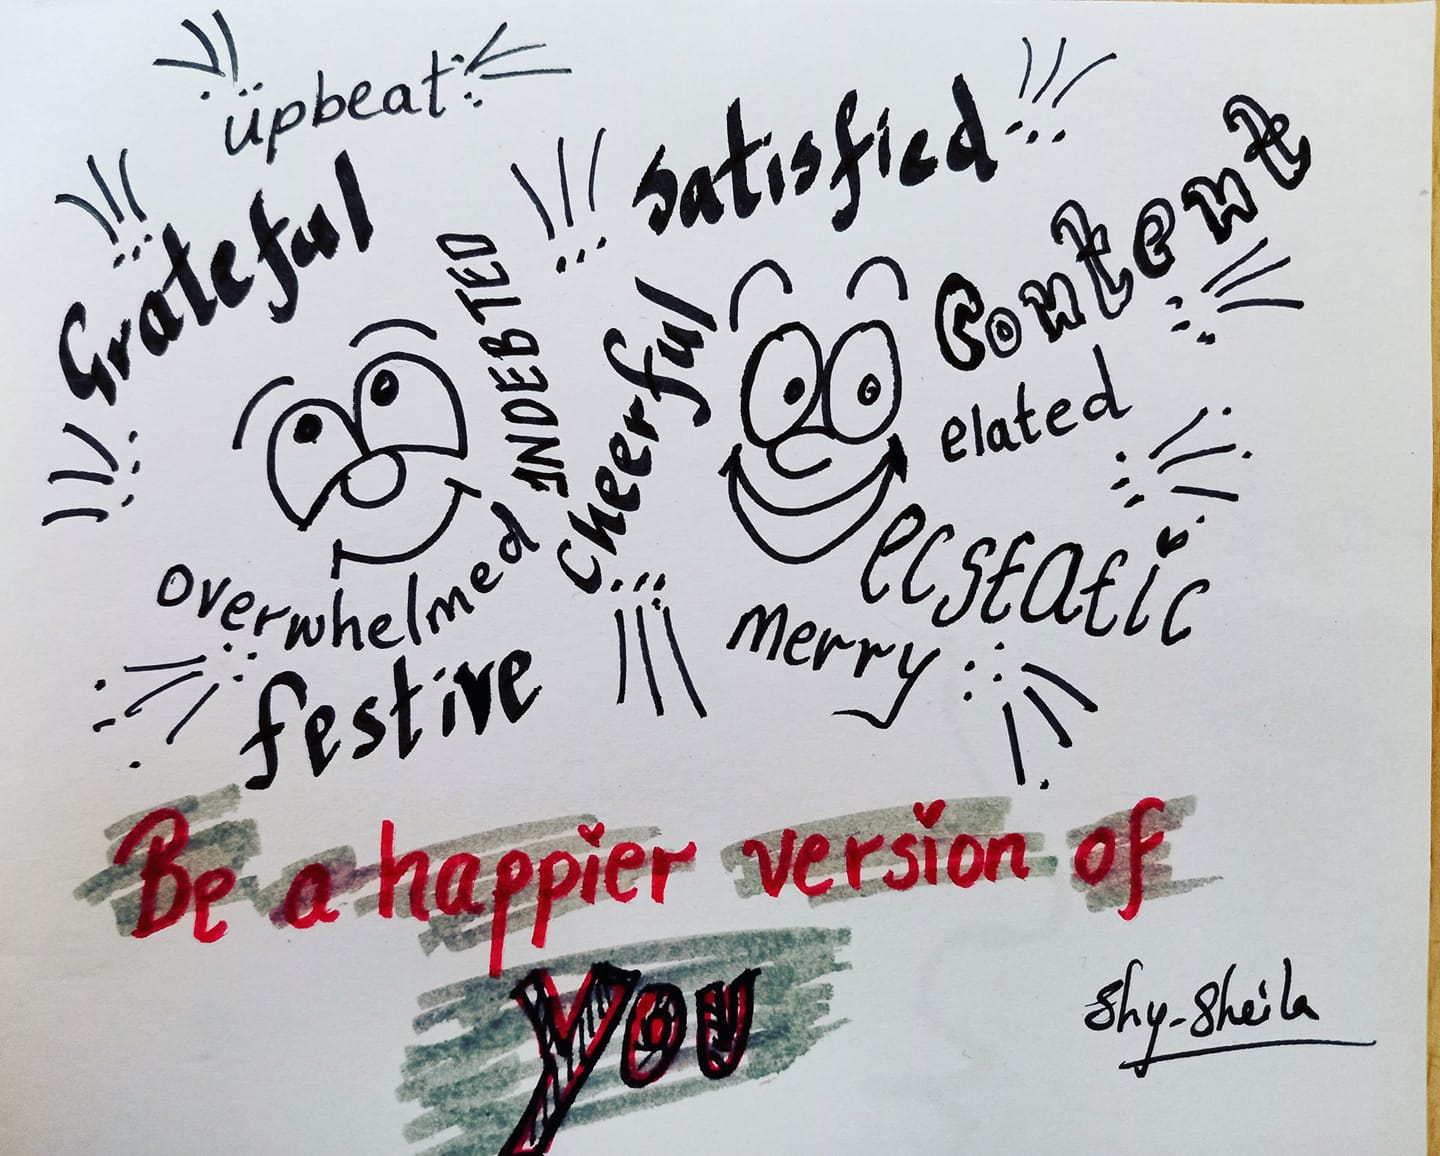 upbeat
Grateful
INDEBTED
overwhelmed
festive
satisfied
cheerful
content
elated
ecstatic
merry
Be a happier version of
you
shy-sheila